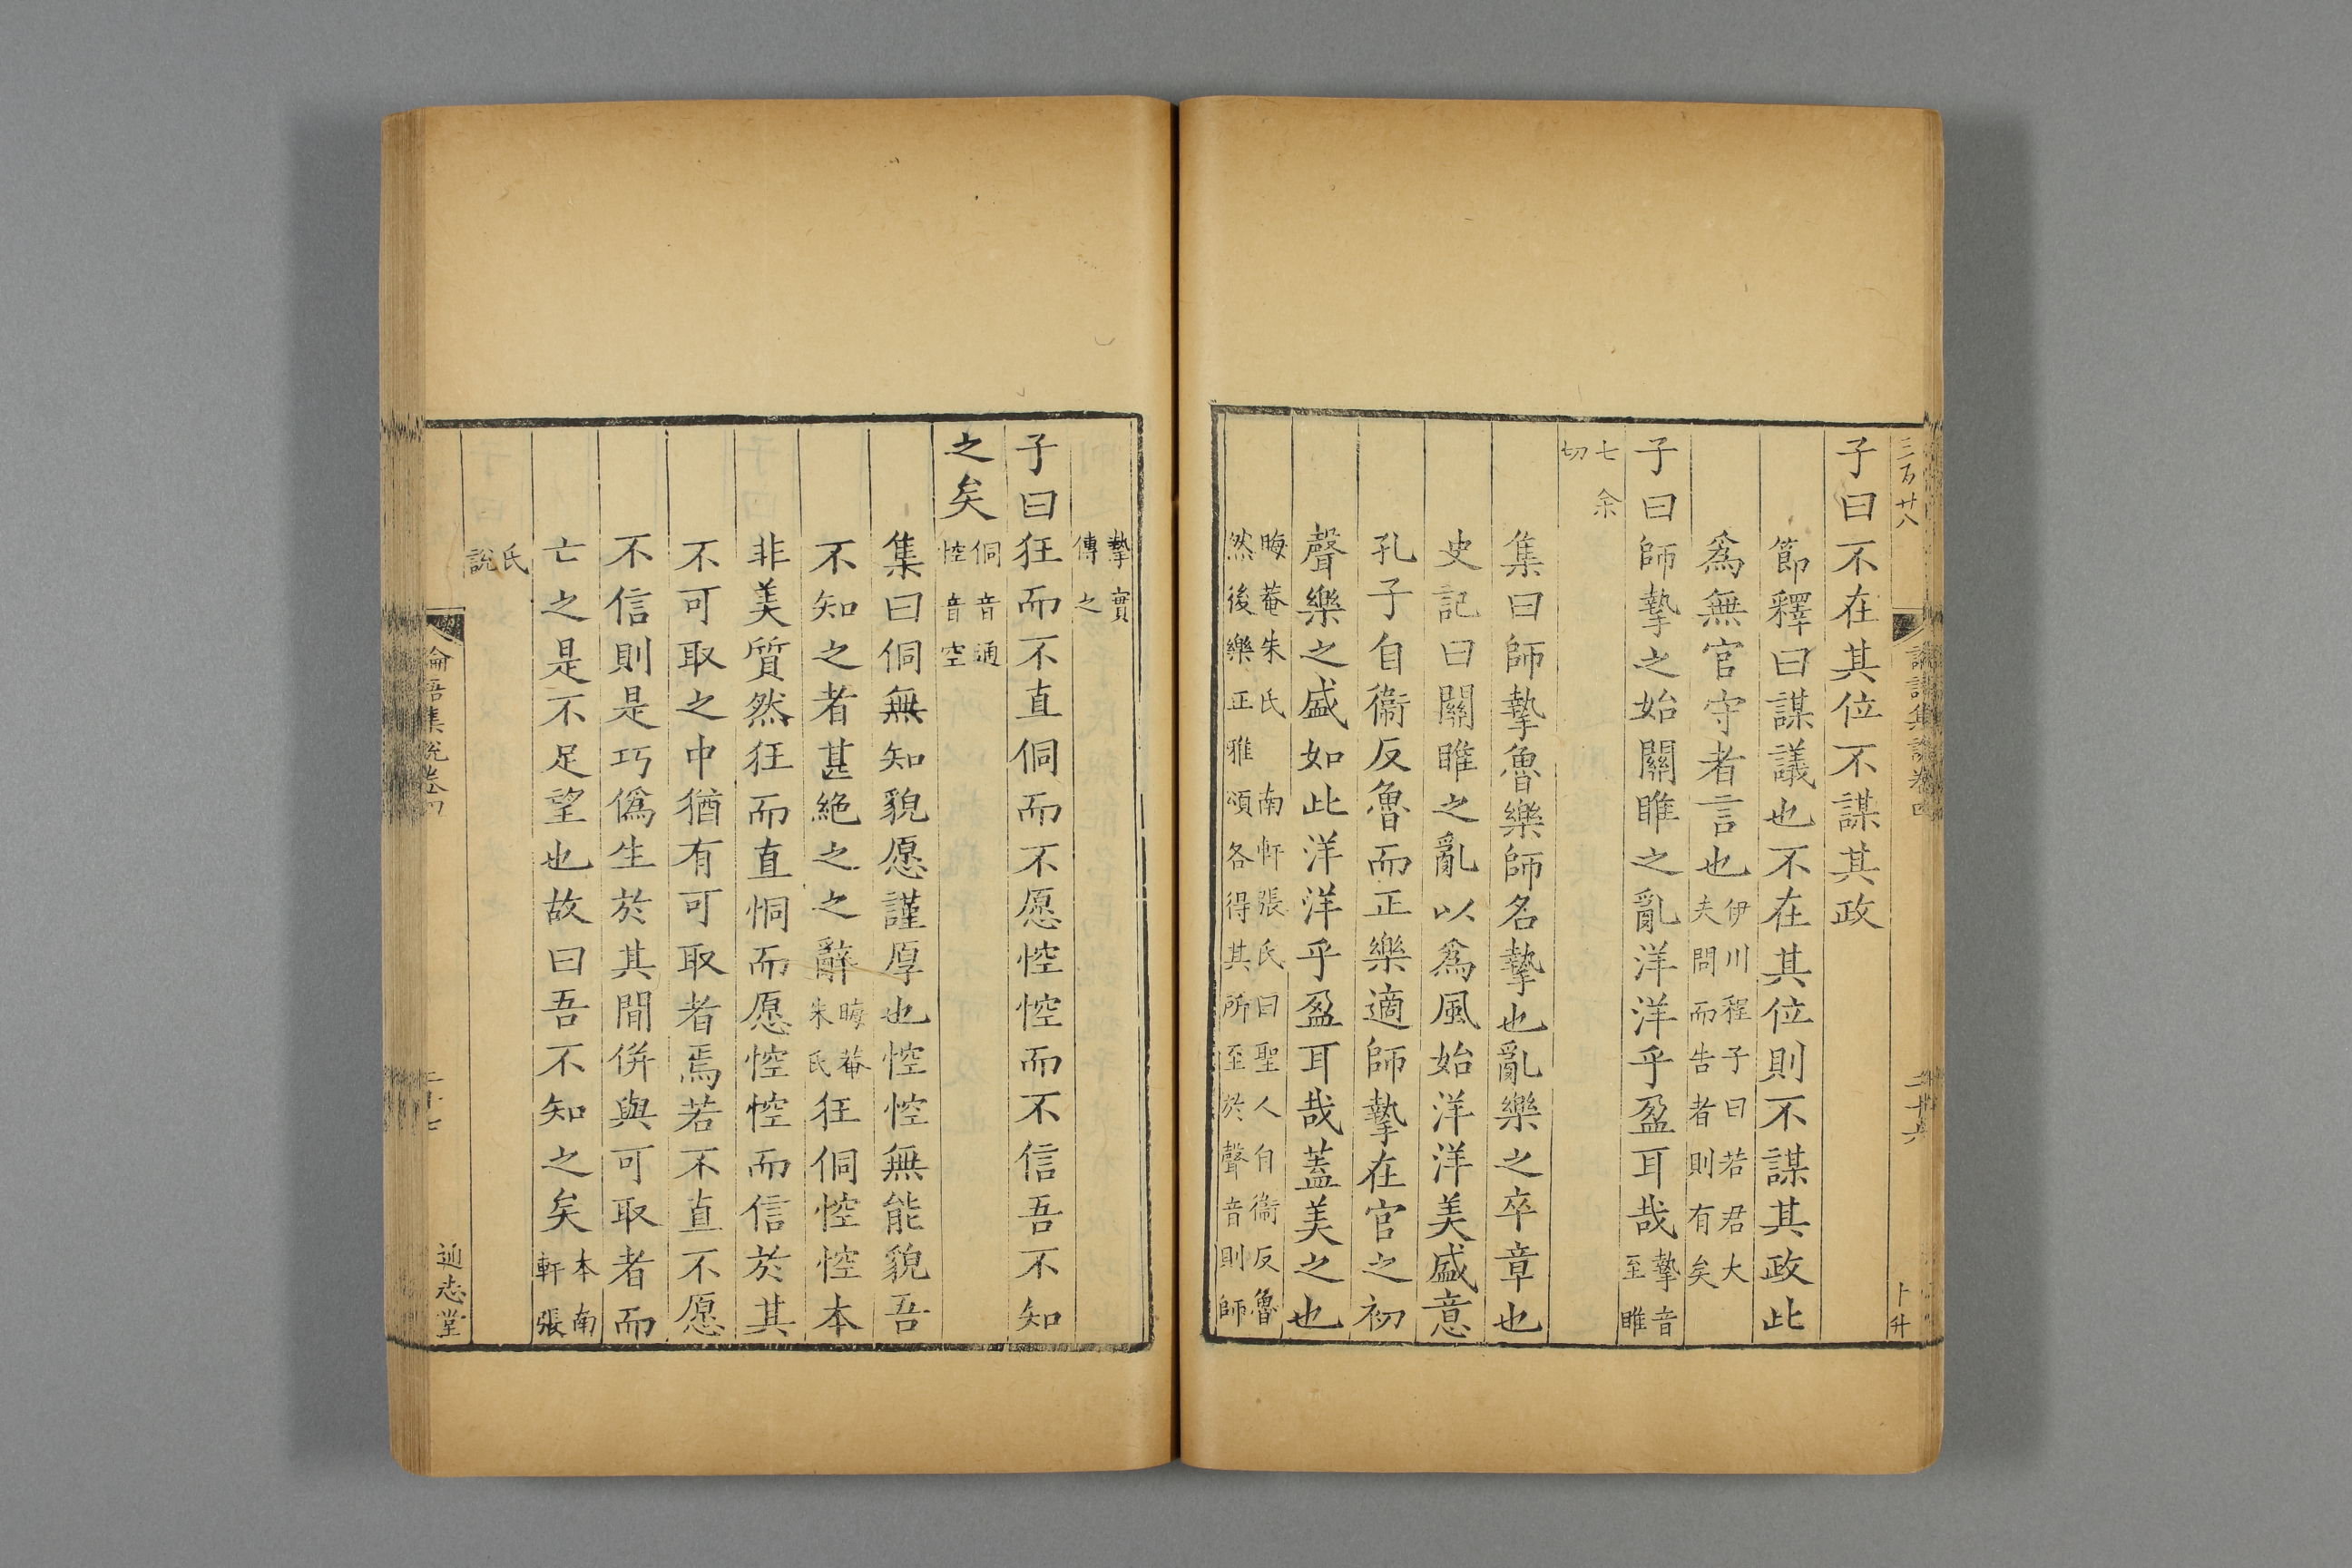 三百廿八
卜升
子曰不在其位不謀其政
節釋曰謀議也不在其位則不謀其政此
爲無官守者言也伊川程子曰若君大夫問而告者則有矣
子曰師摯之始關雎之亂洋洋乎盈耳哉摯音至雎
七余切
集曰師摯魯樂師名摯也亂樂之卒章也
史記曰關雎之亂以爲風始洋洋美盛意
孔子自衞反魯而正樂適師摯在官之初
聲樂之盛如此洋洋乎盈耳哉蓋美之也
晦菴朱氏 南軒張氏曰聖人自衞反魯然後樂正雅頌各得其所至於聲音則師
摯實傳之
子曰狂而不直侗而不愿悾悾而不信吾不知
之矣侗音通悾音空
集曰侗無知貌愿謹厚也悾悾無能貌吾
不知之者甚絶之之辭晦菴朱氏狂侗悾悾本
非美質然狂而直恫而愿悾悾而信於其
不可取之中猶有可取者焉若不直不愿
不信則是巧僞生於其間併與可取者而
亡之是不足望也故曰吾不知之矣本南軒張
氏說
論語集說卷四
通志堂